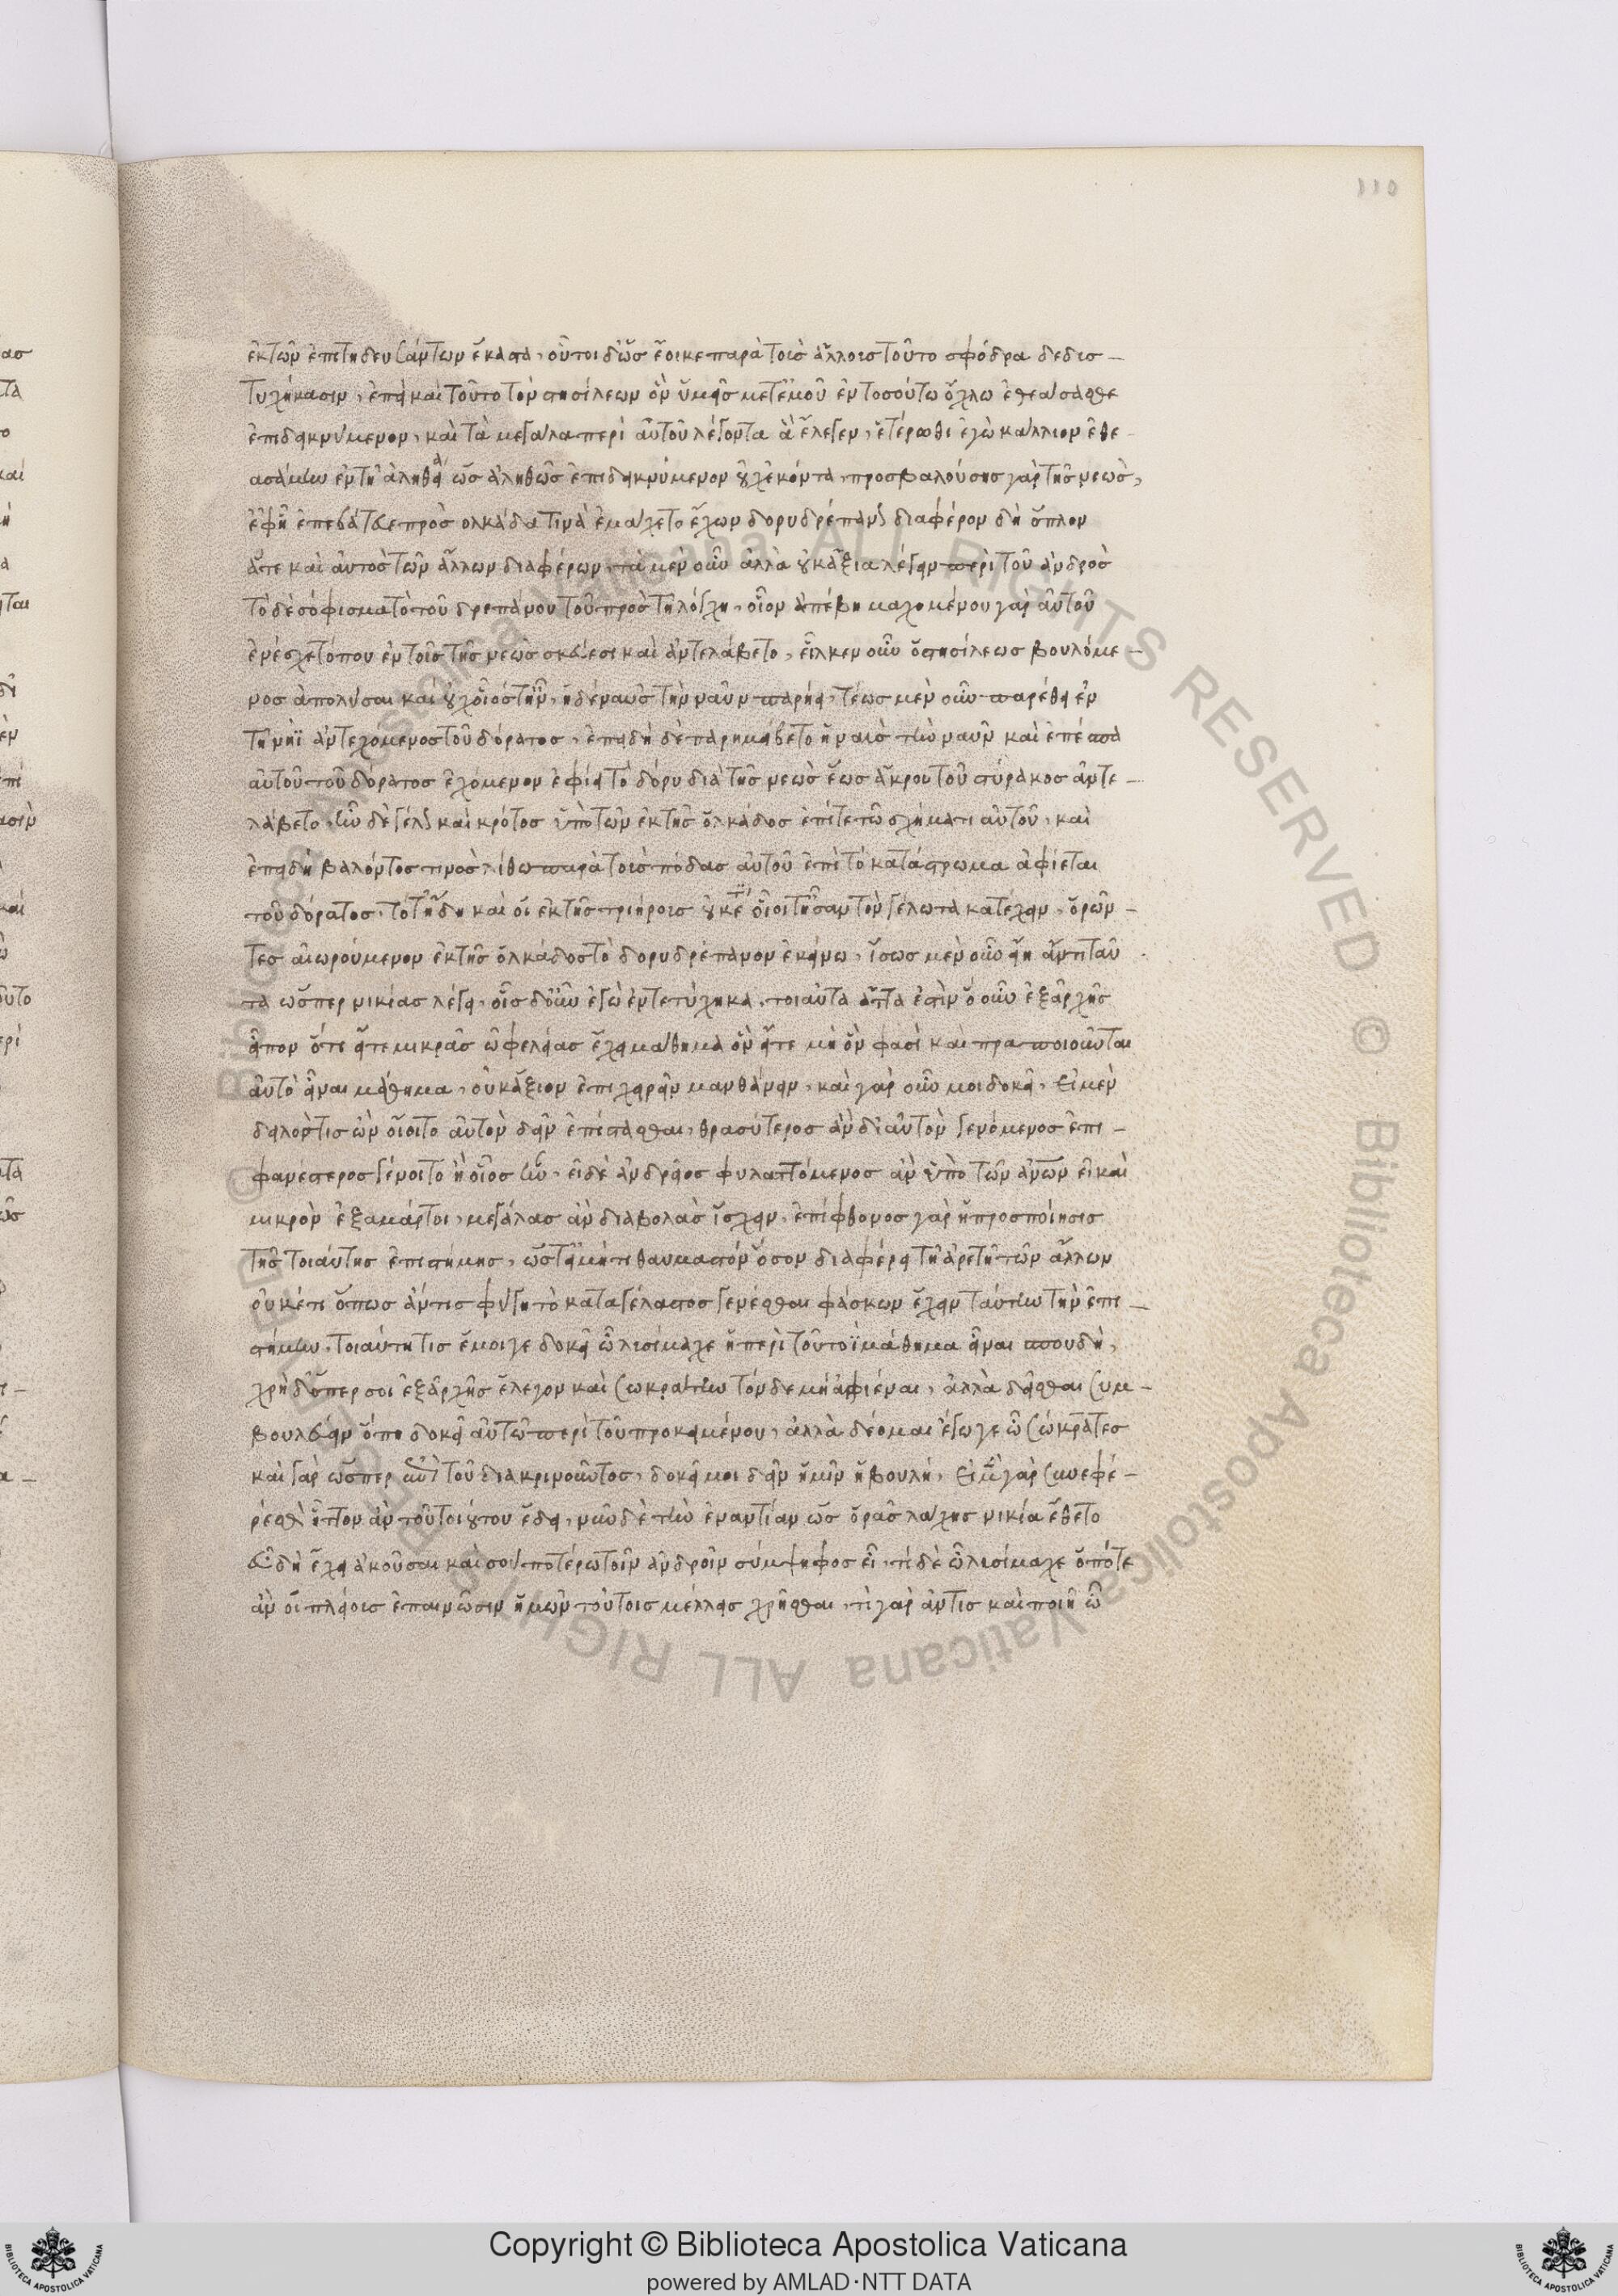 110
ἐκ τῶν ἐπιτηδευσάντων ἕκαστα· οὗτοι δ' ὡς ἔοικε παρὰ τοὺς ἄλλους τοῦτο σφόδρα δεδυσ–
τυχήκασιν· ἐπεὶ καὶ τοῦτον τὸν στησίλεων ὃν ὑμεῖς μετ' ἐμοῦ ἐν τοσούτω ὄχλω ἐθεάσασθε
ἐπιδεικνύμενον, καὶ τὰ μεγάλα περὶ αὑτοῦ λέγοντα ἃ ἔλεγεν, ἑτέρωθι ἐγὼ κάλλιον ἐθε–
ασάμην ἐν τῆ ἀληθεία ὡς ἀληθῶς ἐπιδεικνύμενον οὐχ ἑκόντα· προσβαλούσης γὰρ τῆς νεὼς,
ἐφ' ἧ ἐπεβάτευε πρὸς ὁλκάδα τινὰ ἐμάχετο ἔχων δορυδρέπανον διαφέρον δὴ ὅπλον
ἅτε καὶ αὐτὸς τῶν ἄλλων διαφέρων· τὰ μὲν οὖν ἄλλα οὐκ ἄξια λέγειν περὶ τοῦ ἀνδρὸς
τὸ δὲ σόφισμα τὸ τοῦ δρεπάνου τοῦ πρὸς τῆ λόγχη, οἷον ἀπέβη μαχομένου γὰρ αὐτοῦ
ἐνέσχετό που ἐν τοῖς τῆς νεὼς σκεύεσι καὶ ἀντελάβετο, εἷλκεν οὖν ὁ στησίλεως βουλόμε–
νος ἀπολῦσαι καὶ οὐχ οἷός τ' ἦν, ἡ δὲ ναῦς τὴν ναῦν παρήει, τέως μὲν οὖν παρέθει ἐν
τῆ νηῒ ἀντεχόμενος τοῦ δόρατος, ἐπειδὴ δὲ παρημείβετο ἡ ναῦς τὴν ναῦν καὶ ἐπέσπα
αὐτὸν τοῦ δόρατος ἐχόμενον ἐφίει τὸ δόρυ διὰ τῆς νεὼς ἕως ἄκρου τοῦ στύρακος ἀντε–
λάβετο· ἦν δὲ γέλως καὶ κρότος ὑπὸ τῶν ἐκ τῆς ὁλκάδος ἐπί τε τῶ σχήματι αὐτοῦ, καὶ
ἐπειδὴ βαλόντος τινὸς λίθω παρὰ τοὺς πόδας αὐτοῦ ἐπὶ τὸ κατάστρωμα ἀφίεται
τοῦ δόρατος, τότ' ἤδη καὶ οἱ ἐκ τῆς τριήρους οὐκέτι οἷοί τ' ἦσαν τὸν γέλωτα κατέχειν, ὁρῶν–
τες αἰωρούμενον ἐκ τῆς ὁλκάδος τὸ δορυδρέπανον ἐκεῖνο, ἴσως μὲν οὖν εἴη ἄν τι ταῦ
τα ὥσπερ νικίας λέγει, οἷς δ' οὖν ἐγὼ ἐντετύχηκα, τοιαῦτα ἄττα ἐστὶν ὃ οὖν ἐξ ἀρχῆς
εἶπον ὅτι εἴτε μικρὰς ὠφελείας ἔχει μάθημα ὂν εἴτε μὴ ὂν φασὶ καὶ προσποιοῦνται
αὐτὸ εἶναι μάθημα, οὐκ ἄξιον ἐπιχειρεῖν μανθάνειν, καὶ γὰρ οὖν μοι δοκεῖ, εἰ μὲν
δειλός τις ὢν οἴοιτο αὐτὸν δεῖν ἐπίστασθαι, θρασύτερος ἂν δι' αὐτὸν γενόμενος ἐπι–
φανέστερος γένοιτο ἢ οἷος ἦν, εἰ δὲ ἀνδρεῖος φυλαττόμενος ἂν ὑπὸ τῶν ἀνων εἰ καὶ
μικρὸν ἐξαμάρτοι, μεγάλας ἂν διαβολὰς ἴσχειν, ἐπίφθονος γὰρ ἡ προσποίησις
τῆς τοιαύτης ἐπιστήμης, ὥστ' εἰ μή τι θαυμαστὸν ὅσον διαφέρει τῆ ἀρετῆ τῶν ἄλλων
οὐκ ἔτι ὅπως ἄν τις φύγη τὸ καταγέλαστος γενέσθαι φάσκων ἔχειν ταύτην τὴν ἐπι–
στήμην· τοιαύτη τις ἔμοιγε δοκεῖ ὦ λυσίμαχε ἡ περὶ τοῦτο μάθημα εἶναι σπουδὴ,
χρὴ δ' ὅπερ σοι ἐξ ἀρχῆς ἔλεγον καὶ σωκράτην τόνδε μὴ ἀφιέναι, ἀλλὰ δεῖσθαι συμ–
βουλεύειν ὅπη δοκεῖ αὐτῶ περὶ τοῦ προκειμένου, ἀλλὰ δέομαι ἔγωγε ὦ σώκρατες
καὶ γὰρ ὥσπερ ἔτι τοῦ διακρινοῦντος, δοκεῖ μοι δεῖν ἡμῖν ἡ βουλή, εἰ μὲν γὰρ συνεφέ–
ρέσθην ἧττον ἂν τοῦ τοιούτου ἔδει, νῦν δὲ τὴν ἐναντίαν ὡς ὁρᾶς λάχης νικία ἔθετο
εὖ δὴ ἔχει ἀκοῦσαι καὶ σοῦ ποτέρω τοῖν ἀνδροῖν σύμψηφος εἶ, τί δὲ ὦ λυσίμαχε ὁπότε
ἂν οἱ πλείους ἐπαινῶσιν ἡμῶν τούτοις μέλλεις χρῆσθαι, τί γὰρ ἄν τις καὶ ποιῆ ὦ
Copyright © Biblioteca Apostolica Vaticana
powered by AMLAD·NTT DATA